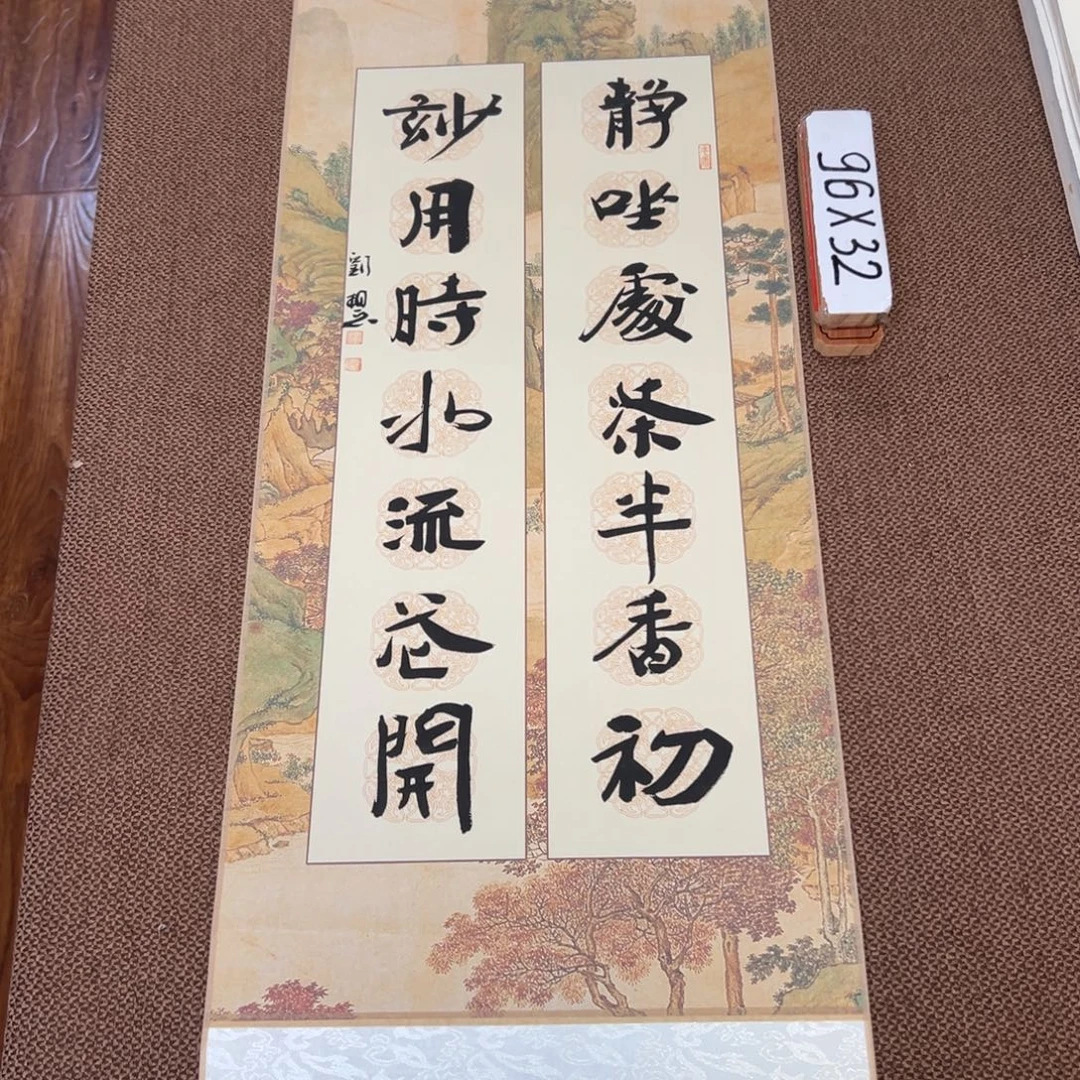 靜坐處茶半香初
玅用時水流花開
劉
96X32